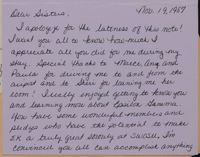 Nov. 19, 1987
Dear Sisters,
I apologize for the lateness of this note!
I want you all to know how much I
appreciate all you did for me during my
stay. Special thanks to Mercé, Amy and
Paula for driving me to and from the
airport and to Sheri for loaning me her
room! I really enjoyed getting to know you
and learning more about Gamma.
You have some wonderful members and
pledges who have the potential to make
a truly great sorority at
convinced you all can accomplish anything